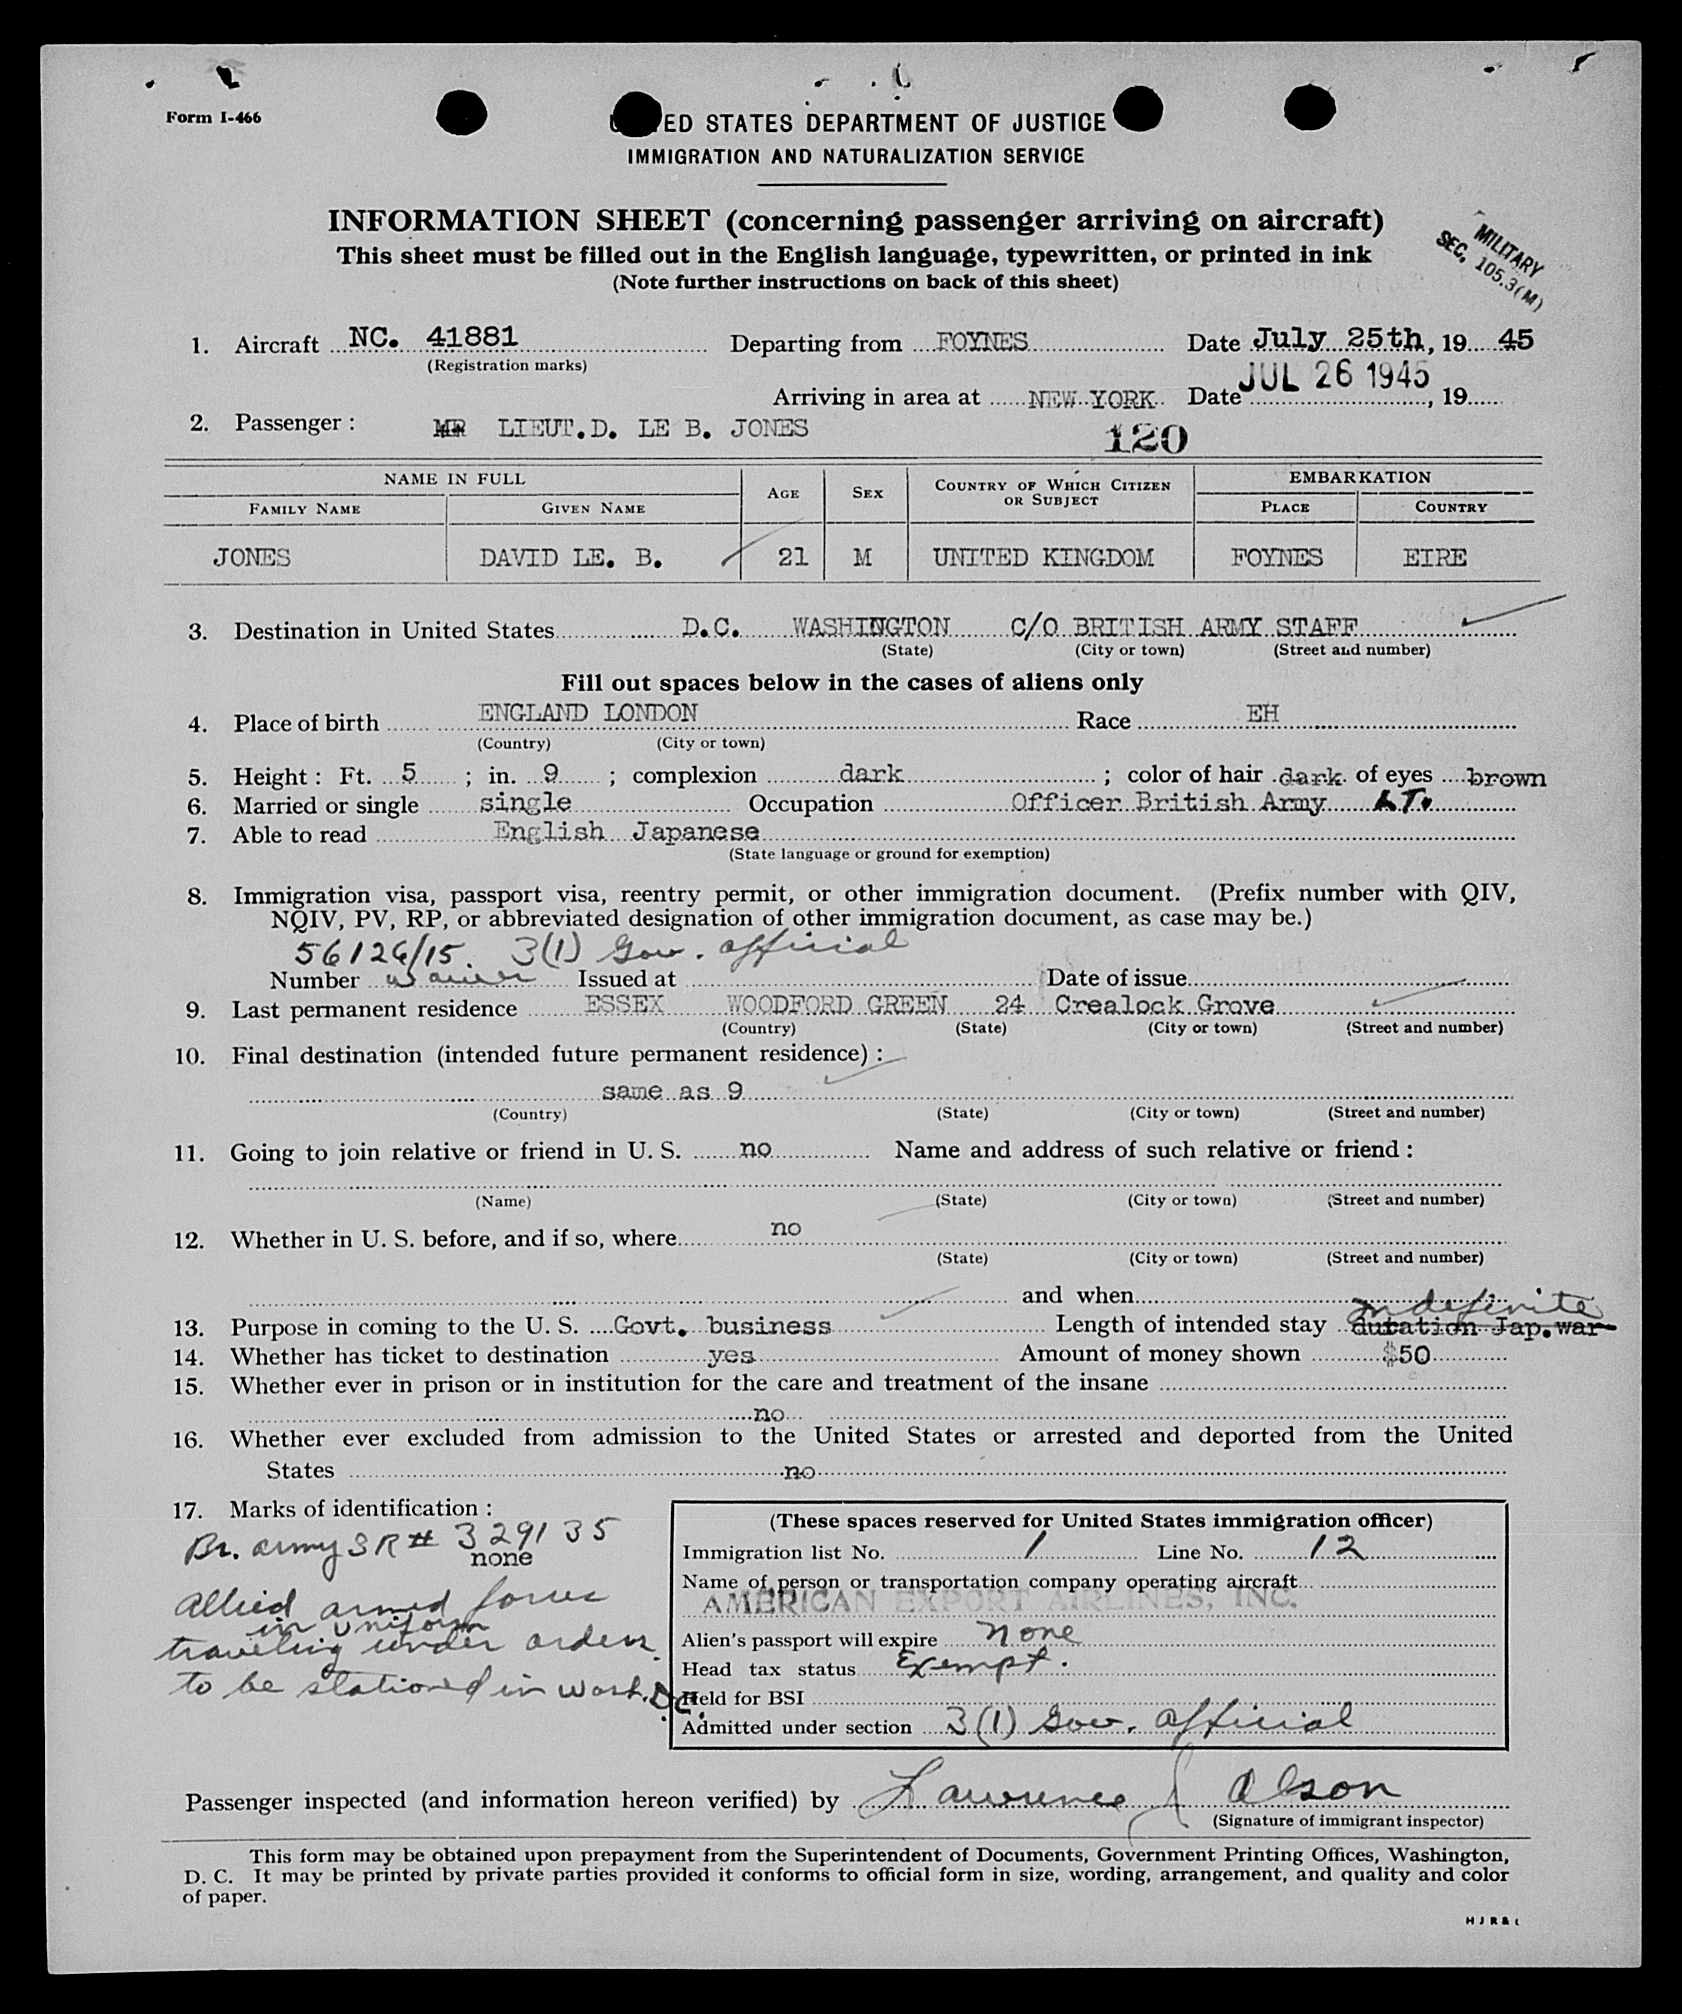 Form I-466
UNITED STATES DEPARTMENT OF JUSTICE
IMMIGRATION AND NATURALIZATION SERVICE
INFORMATION SHEET (concerning passenger arriving on aircraft)
This sheet must be filled out in the English language, typewritten, or printed in ink
(Note further instructions on back of this sheet)
MILITARY
SEC. 105.3(M)
1. Aircraft NC. 41881 Departing from FOYNES Date July 25th, 19 45
(Registration marks)
Arriving in area at NEW YORK Date JUL 26 1945, 19
2. Passenger : MR LIEUT.D. LE B. JONES
120
NAME IN FULL AGE SEX COUNTRY OF WHICH CITIZEN OR SUBJECT EMBARKATION
FAMILY NAME GIVEN NAME PLACE COUNTRY
JONES DAVID LE. B. 21 M UNITED KINGDOM FOYNES EIRE
3. Destination in United States D.C. WASHINGTON C/O BRITISH ARMY STAFF
(State) (City or town) (Street and number)
Fill out spaces below in the cases of aliens only
4. Place of birth ENGLAND LONDON Race EH
(Country) (City or town)
5. Height : Ft. 5 ; in. 9 ; complexion dark ; color of hair dark of eyes brown
6. Married or single single Occupation Officer British Army LT.
7. Able to read English Japanese
(State language or ground for exemption)
8. Immigration visa, passport visa, reentry permit, or other immigration document. (Prefix number with QIV,
NQIV, PV, RP, or abbreviated designation of other immigration document, as case may be.)
56126/15. 3(1) Gov. official
Number waiver Issued at Date of issue
9. Last permanent residence ESSEX WOODFORD GREEN 24 Crealock Grove
(Country) (State) (City or town) (Street and number)
10. Final destination (intended future permanent residence) :
same as 9
(Country) (State) (City or town) (Street and number)
11. Going to join relative or friend in U. S. no Name and address of such relative or friend :
(Name) (State) (City or town) (Street and number)
12. Whether in U. S. before, and if so, where no
(State) (City or town) (Street and number)
and when
indefinite
13. Purpose in coming to the U. S. Govt. business Length of intended stay duration Jap.war
14. Whether has ticket to destination yes Amount of money shown $50
15. Whether ever in prison or in institution for the care and treatment of the insane
no
16. Whether ever excluded from admission to the United States or arrested and deported from the United
States no
17. Marks of identification :
Br. army SR# 329135
none
Allied armed forces
in uniform
traveling under orders.
to be stationed in Wash. D.C.
(These spaces reserved for United States immigration officer)
Immigration list No. 1 Line No. 12
Name of person or transportation company operating aircraft
AMERICAN EXPORT AIRLINES, INC.
Alien's passport will expire None
Head tax status Exempt.
Held for BSI
Admitted under section 3(1) Gov. official
Passenger inspected (and information hereon verified) by Lawrence J Olson
(Signature of immigrant inspector)
This form may be obtained upon prepayment from the Superintendent of Documents, Government Printing Offices, Washington,
D. C. It may be printed by private parties provided it conforms to official form in size, wording, arrangement, and quality and color
of paper.